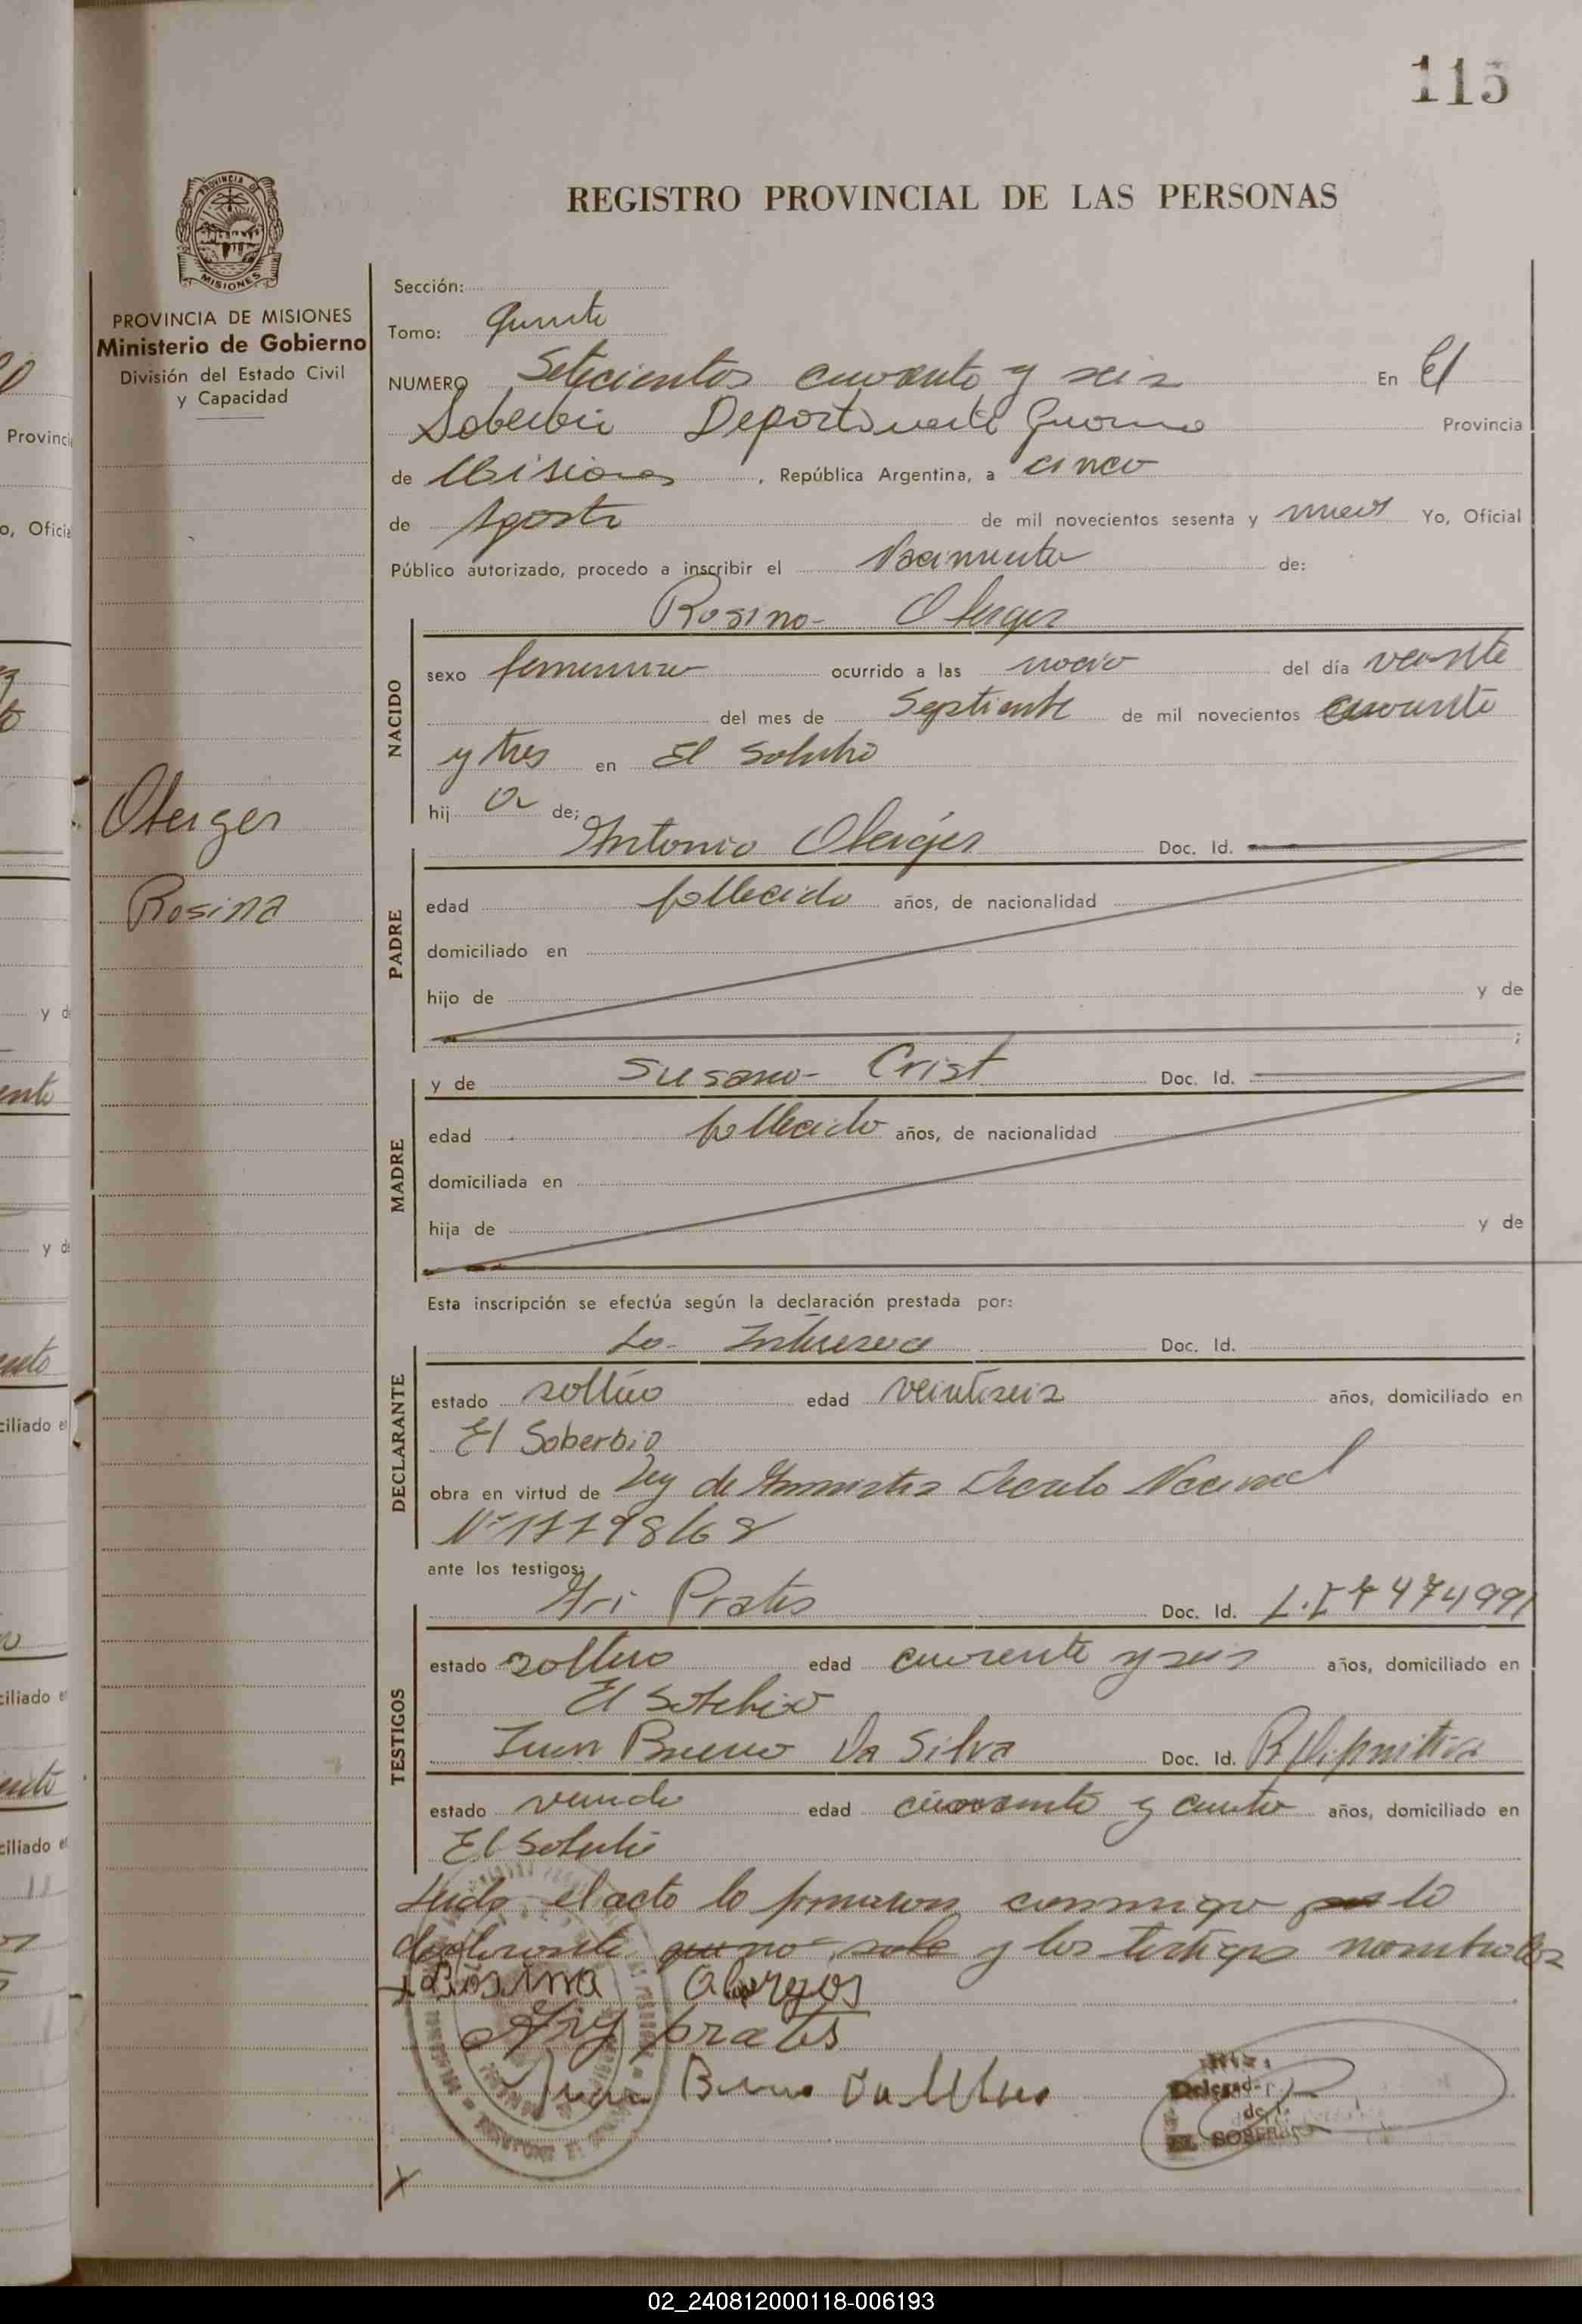 115
PROVINCIA DE
MISIONES
REGISTRO PROVINCIAL DE LAS PERSONAS
PROVINCIA DE MISIONES
Ministerio de Gobierno
División del Estado Civil
y Capacidad
Sección:
Tomo: Quinto
NUMERO Setecientos cuarenta y seis En El
Soberbio Departamento Guarani Provincia
de Misiones, República Argentina, a cinco
de Agosto de mil novecientos sesenta y nueve Yo, Oficial
Público autorizado, procedo a inscribir el Nacimiento de:
Rosina
NACIDO
sexo femenino ocurrido a las nueve del día veinte
del mes de Septiembre de mil novecientos cuarenta
y tres en El Soberbio
hij a de;
Oberger
Rosina
Antonio Oberger Doc. Id.
PADRE
edad fallecido años, de nacionalidad
domiciliado en
hijo de y de
;
y de Susana Crist Doc. Id.
MADRE
edad fallecida años, de nacionalidad
domiciliada en
hija de y de
Esta inscripción se efectúa según la declaración prestada por:
La Interesada Doc. Id.
DECLARANTE
estado soltera edad veintiseis años, domiciliado en
El Soberbio
obra en virtud de Ley de Amnistia Decreto Nacional
Nº 17798/68
ante los testigos:
Ari Prates Doc. Id.
TESTIGOS
estado soltero edad cuarenta y seis años, domiciliado en
El Soberbio
Juan Bueno Da Silva Doc. Id.
estado viudo edad cincuenta y cuatro años, domiciliado en
El Soberbio
Leida el acta la firmaron conmigo la
declarante y los testigos nombrados
Rosina
Ary prates
Juan Bueno Da
Delegad
SOBERBIO
02_240812000118-006193